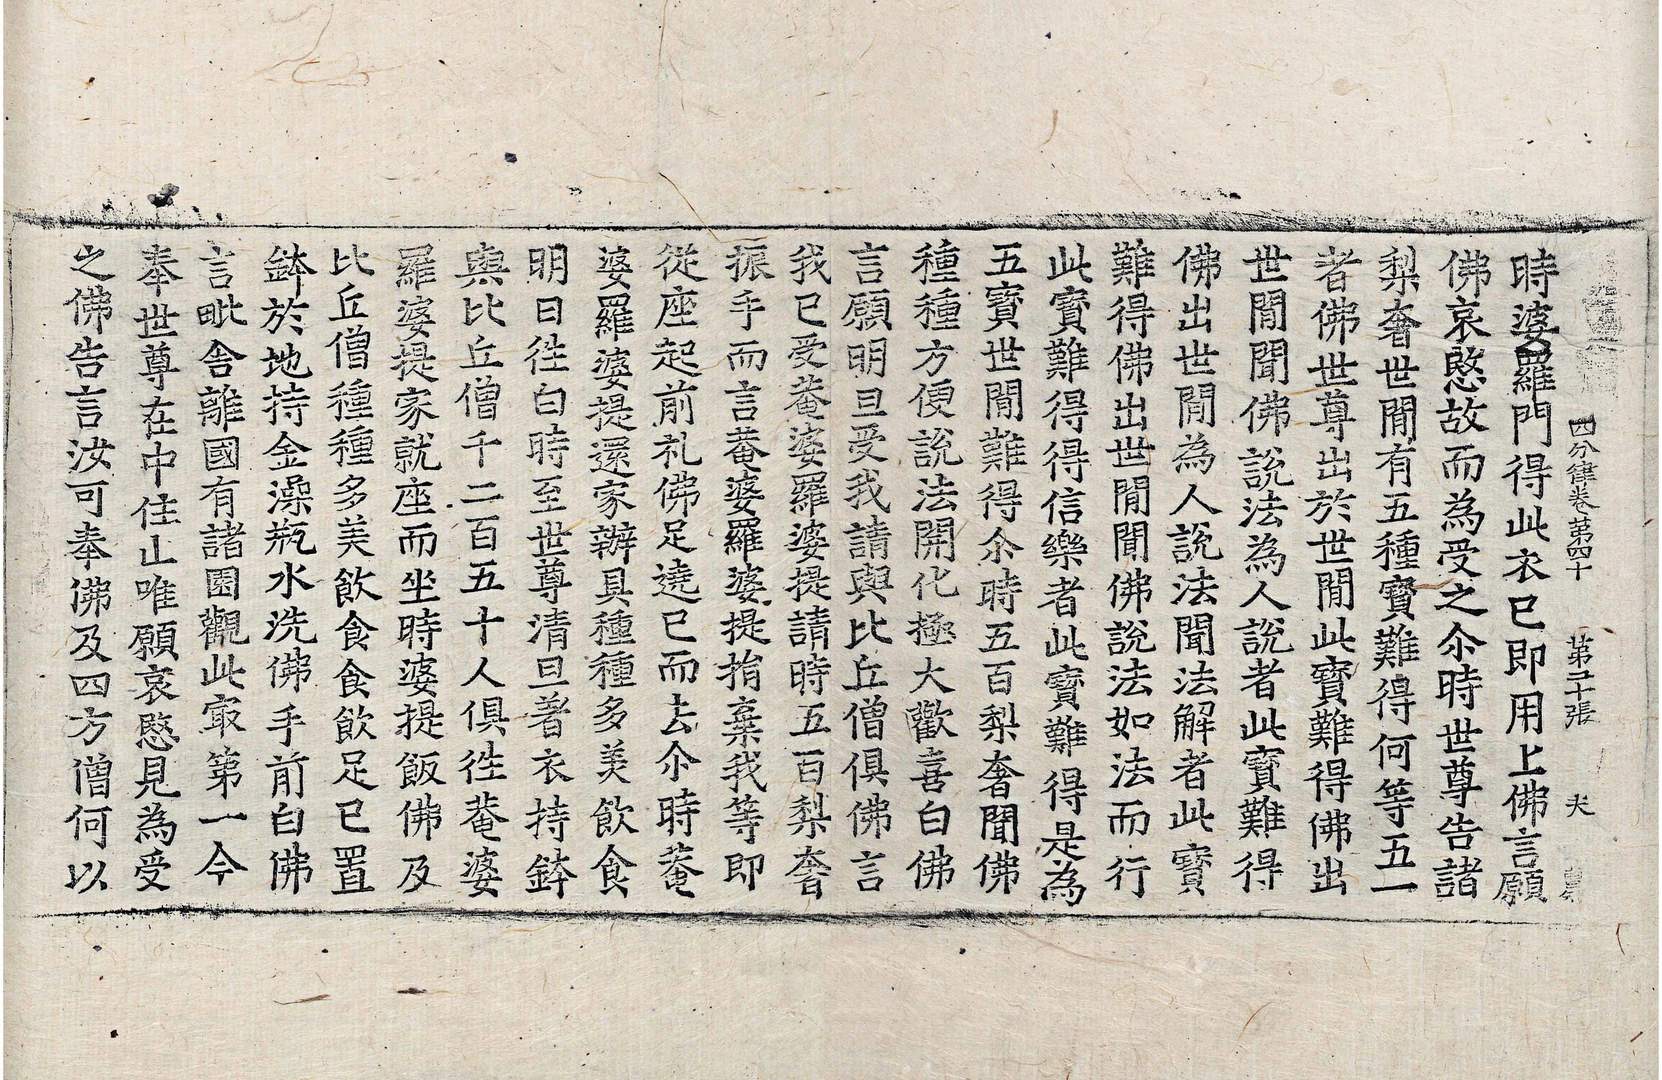 四分律卷第四十 第二十張 夫
時婆羅門得此衣已即用上佛言願
佛哀愍故而為受之尒時世尊告諸
梨奢世閒有五種寶難得何等五一
者佛世尊出於世閒此寶難得佛出
世閒聞佛說法為人說者此寶難得
佛出世閒為人說法聞法解者此寶
難得佛出世閒聞佛說法如法而行
此寶難得得信樂者此寶難得是為
五寶世閒難得尒時五百梨奢聞佛
種種方便說法開化極大歡喜白佛
言願明旦受我請與比丘僧俱佛言
我已受菴婆羅婆提請時五百梨奢
振手而言菴婆羅婆提指棄我等即
從座起前礼佛足遶已而去尒時菴
婆羅婆提還家辦具種種多美飲食
明日徃白時至世尊清旦著衣持鉢
與比丘僧千二百五十人俱徃菴婆
羅婆提家就座而坐時婆提飯佛及
比丘僧種種多美飲食食飲足已置
鉢於地持金澡瓶水洗佛手前白佛
言毗舍離國有諸園觀此㝡第一今
奉世尊在中住止唯願哀愍見為受
之佛告言汝可奉佛及四方僧何以